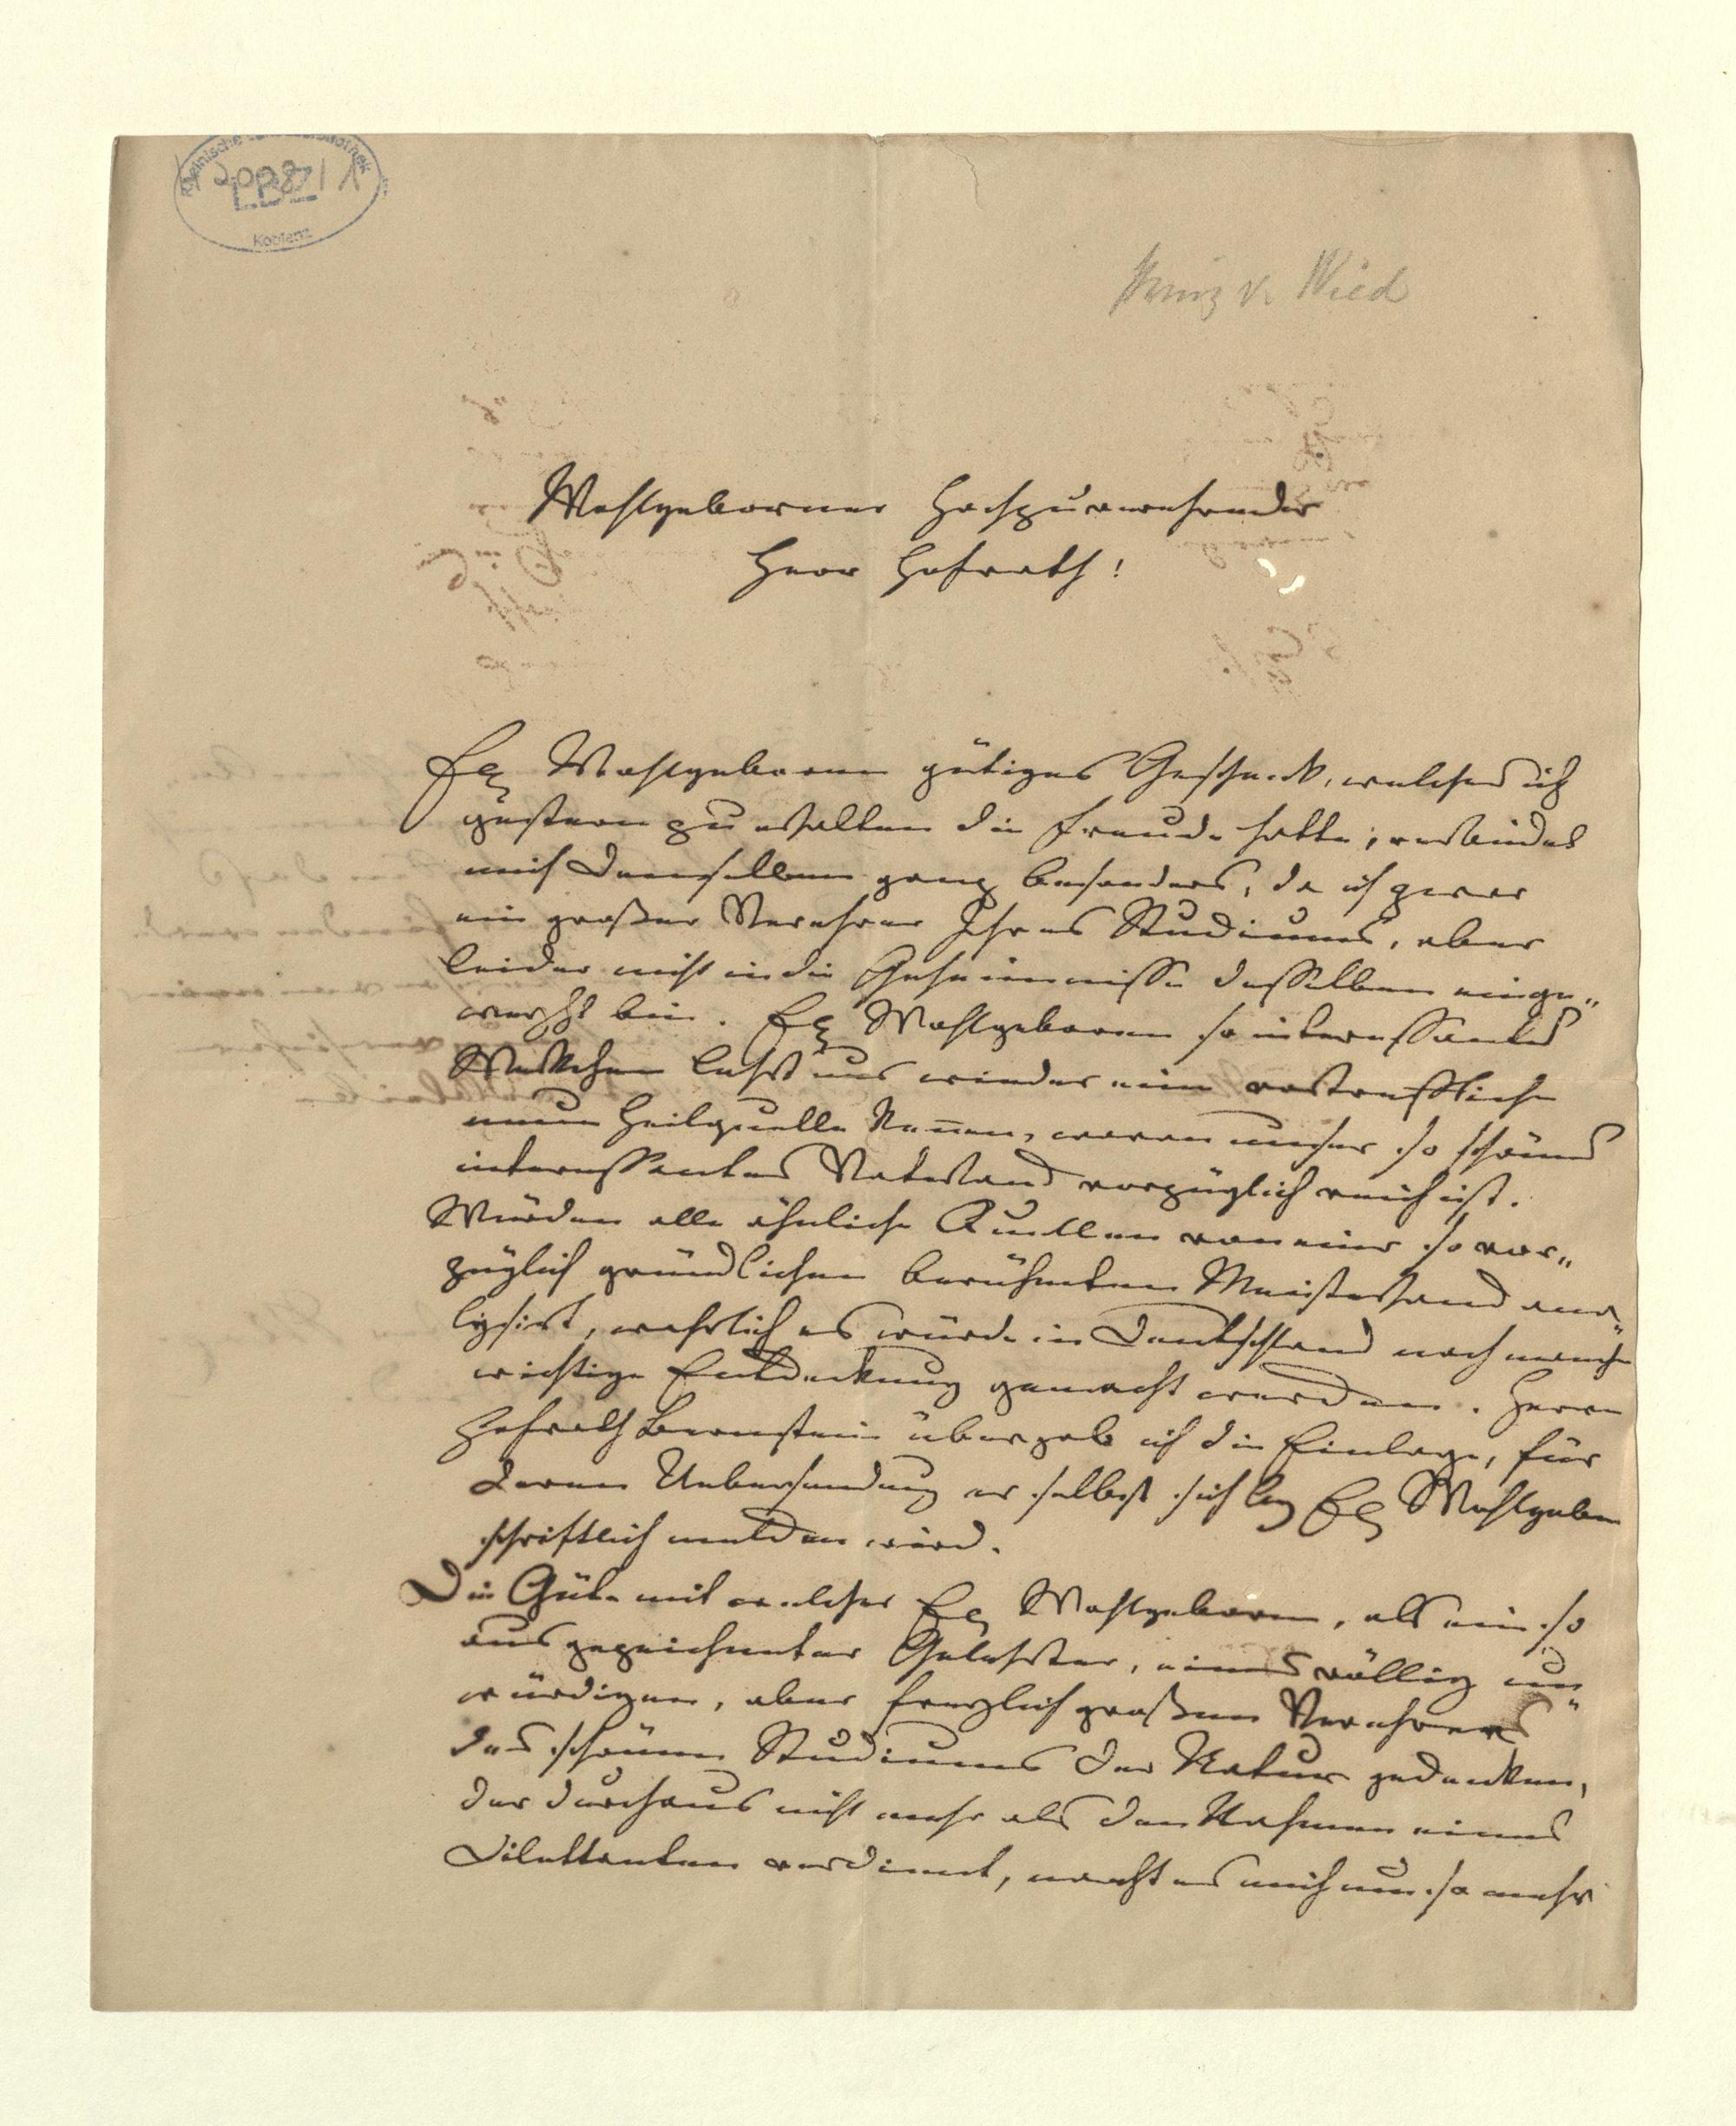 Rheinische Landesbibliothek
2008/1
LBZ
Koblenz
Prinz v. Wied
Wohlgeborner Hochzuverehrender
Herr Hofrath!
Ew Wohlgeboren gütiges Geschenk, welches ich
gestern zu erhalten die Freude hatte, verbindet
mich demselben ganz besonders, da ich zwar
ein großer Verehrer Ihres Studiums, aber
leider nicht in die Geheimnisse desselben einge„
weiht bin. Ew Wohlgeboren so interessantes
Werkchen lehrt uns wieder eine vortreffliche
neue Heilquelle kennen, woran unser so schönes
interessantes Vaterland vorzüglich reich ist.
Würden alle ähnliche Quellen von einer so vor„
züglich gründlichen berühmten Meisterhand ana„
lysirt, wahrlich es würde in Deutschland noch manche
wichtige Entdeckung gemacht werden. Herrn
Hofrath Bernstein übergab ich die Einlage, für
deren Uebersendung er selbst sich bey Ew Wohlgebn
schriftlich melden wird.
Die Güte mit welcher Ew Wohlgeboren, als ein so
ausgezeichneter Gelehrter, eines völlig un„
würdigen, aber freylich großen Verehrers
des schönen Studiums der Natur gedenken,
der durchaus nicht mehr als den Nahmen eines
Dilettanten verdient, macht es mich um so mehr